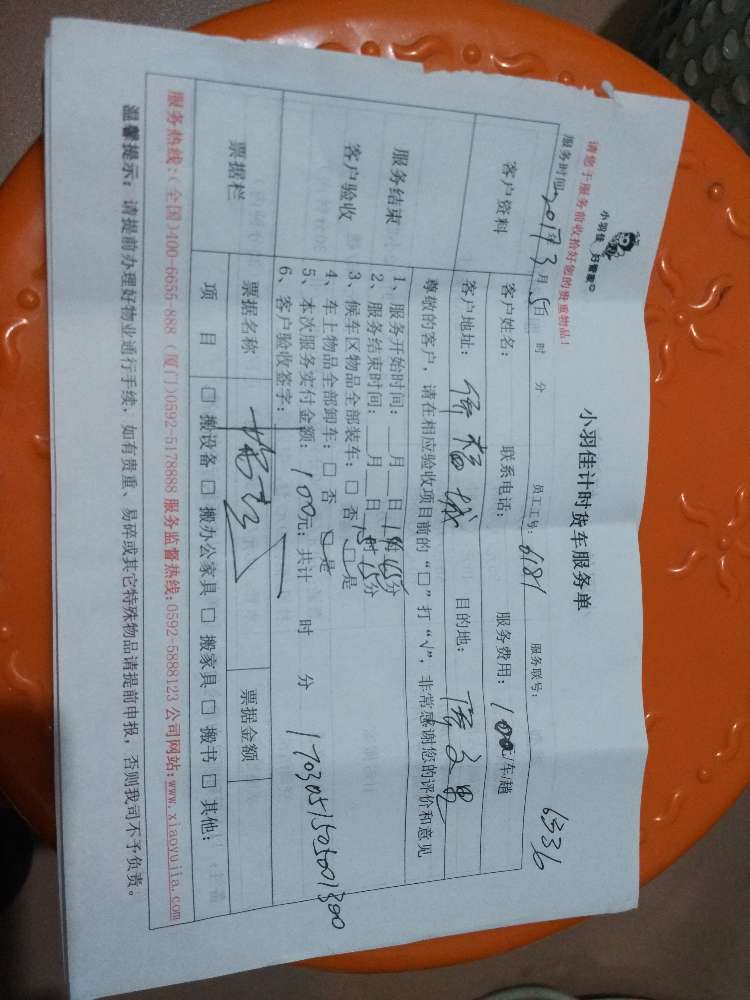 小羽佳 好管家
请您于服务前收拾好您的贵重物品!
小羽佳计时货车服务单
6336
服务时间:2017年3月5日 时 分 员工工号:6181 服务联号:
客户资料
客户姓名: 联系电话: 服务费用:100元/车/趟
客户地址: 目的地:
服务结束
客户验收
尊敬的客户,请在相应验收项目前的“□”打“√”,非常感谢您的评价和意见
1、服务开始时间: 月 日14时45分
2、服务结束时间: 月 日15时15分
3、候车区物品全部装车:□ 否 □ 是
4、车上物品全部卸车:□ 否 □ 是
5、本次服务实付金额:100元;共计 时 分 1703051505001300
6、客户验收签字:
票据栏
票据名称 票据金额
项 目 □ 搬设备 □ 搬办公家具 □ 搬家具 □ 搬书 □ 其他:
服务热线:(全国)400-6655-888 (厦门)0592-5178888 服务监督热线:0592-5888123 公司网站:www.xiaoyujia.com
温馨提示:请提前办理好物业通行手续,如有贵重、易碎或其它特殊物品请提前申报,否则我司不予负责。